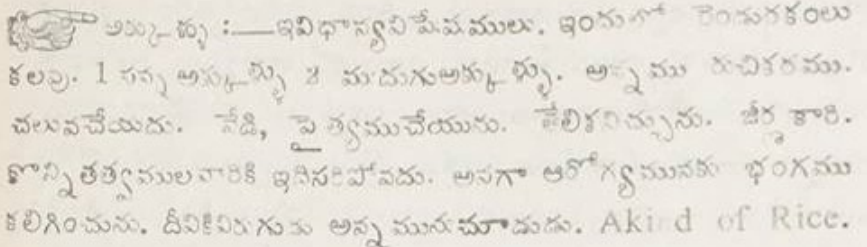 అక్కుళ్ళు :—ఇవిధాన్యవిశేషములు. ఇందులో రెండురకంలు
కలవు. 1 సన్న అక్కుళ్ళు 2 మదుగుఅక్కుళ్ళు. అన్నము రుచికరము.
చలువచేయదు. వేడి, పైత్యముచేయును. తేలికనిచ్చును. జీర్ణకారి.
కొన్నితత్వములవారికి ఇదిసరిపోవదు. అనగా ఆరోగ్యమునకు భంగము
కలిగించును. దీనికివిరుగుడు అన్నమును చూడుడు. A kind of Rice.